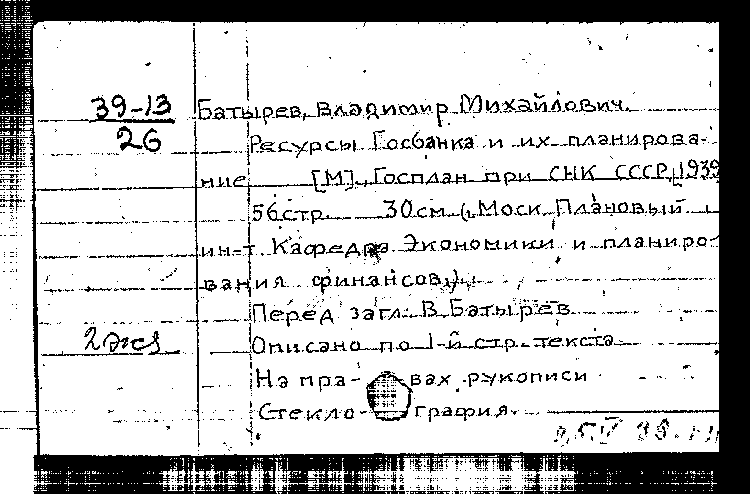 39-13 Батырев, Владимир Михайлович.
26 Ресурсы Госбанка и их планирова-
ние [М]., Госплан при СНК СССР, [1939
56 стр. 30 см. (Моск. Плановый
ин-т. Кафедра Экономики и планиро-
вания финансов.)
Перед загл.: В. Батырев
2 экз Описано по 1-й стр. текста
На пра- вах рукописи
Стекло- графия.